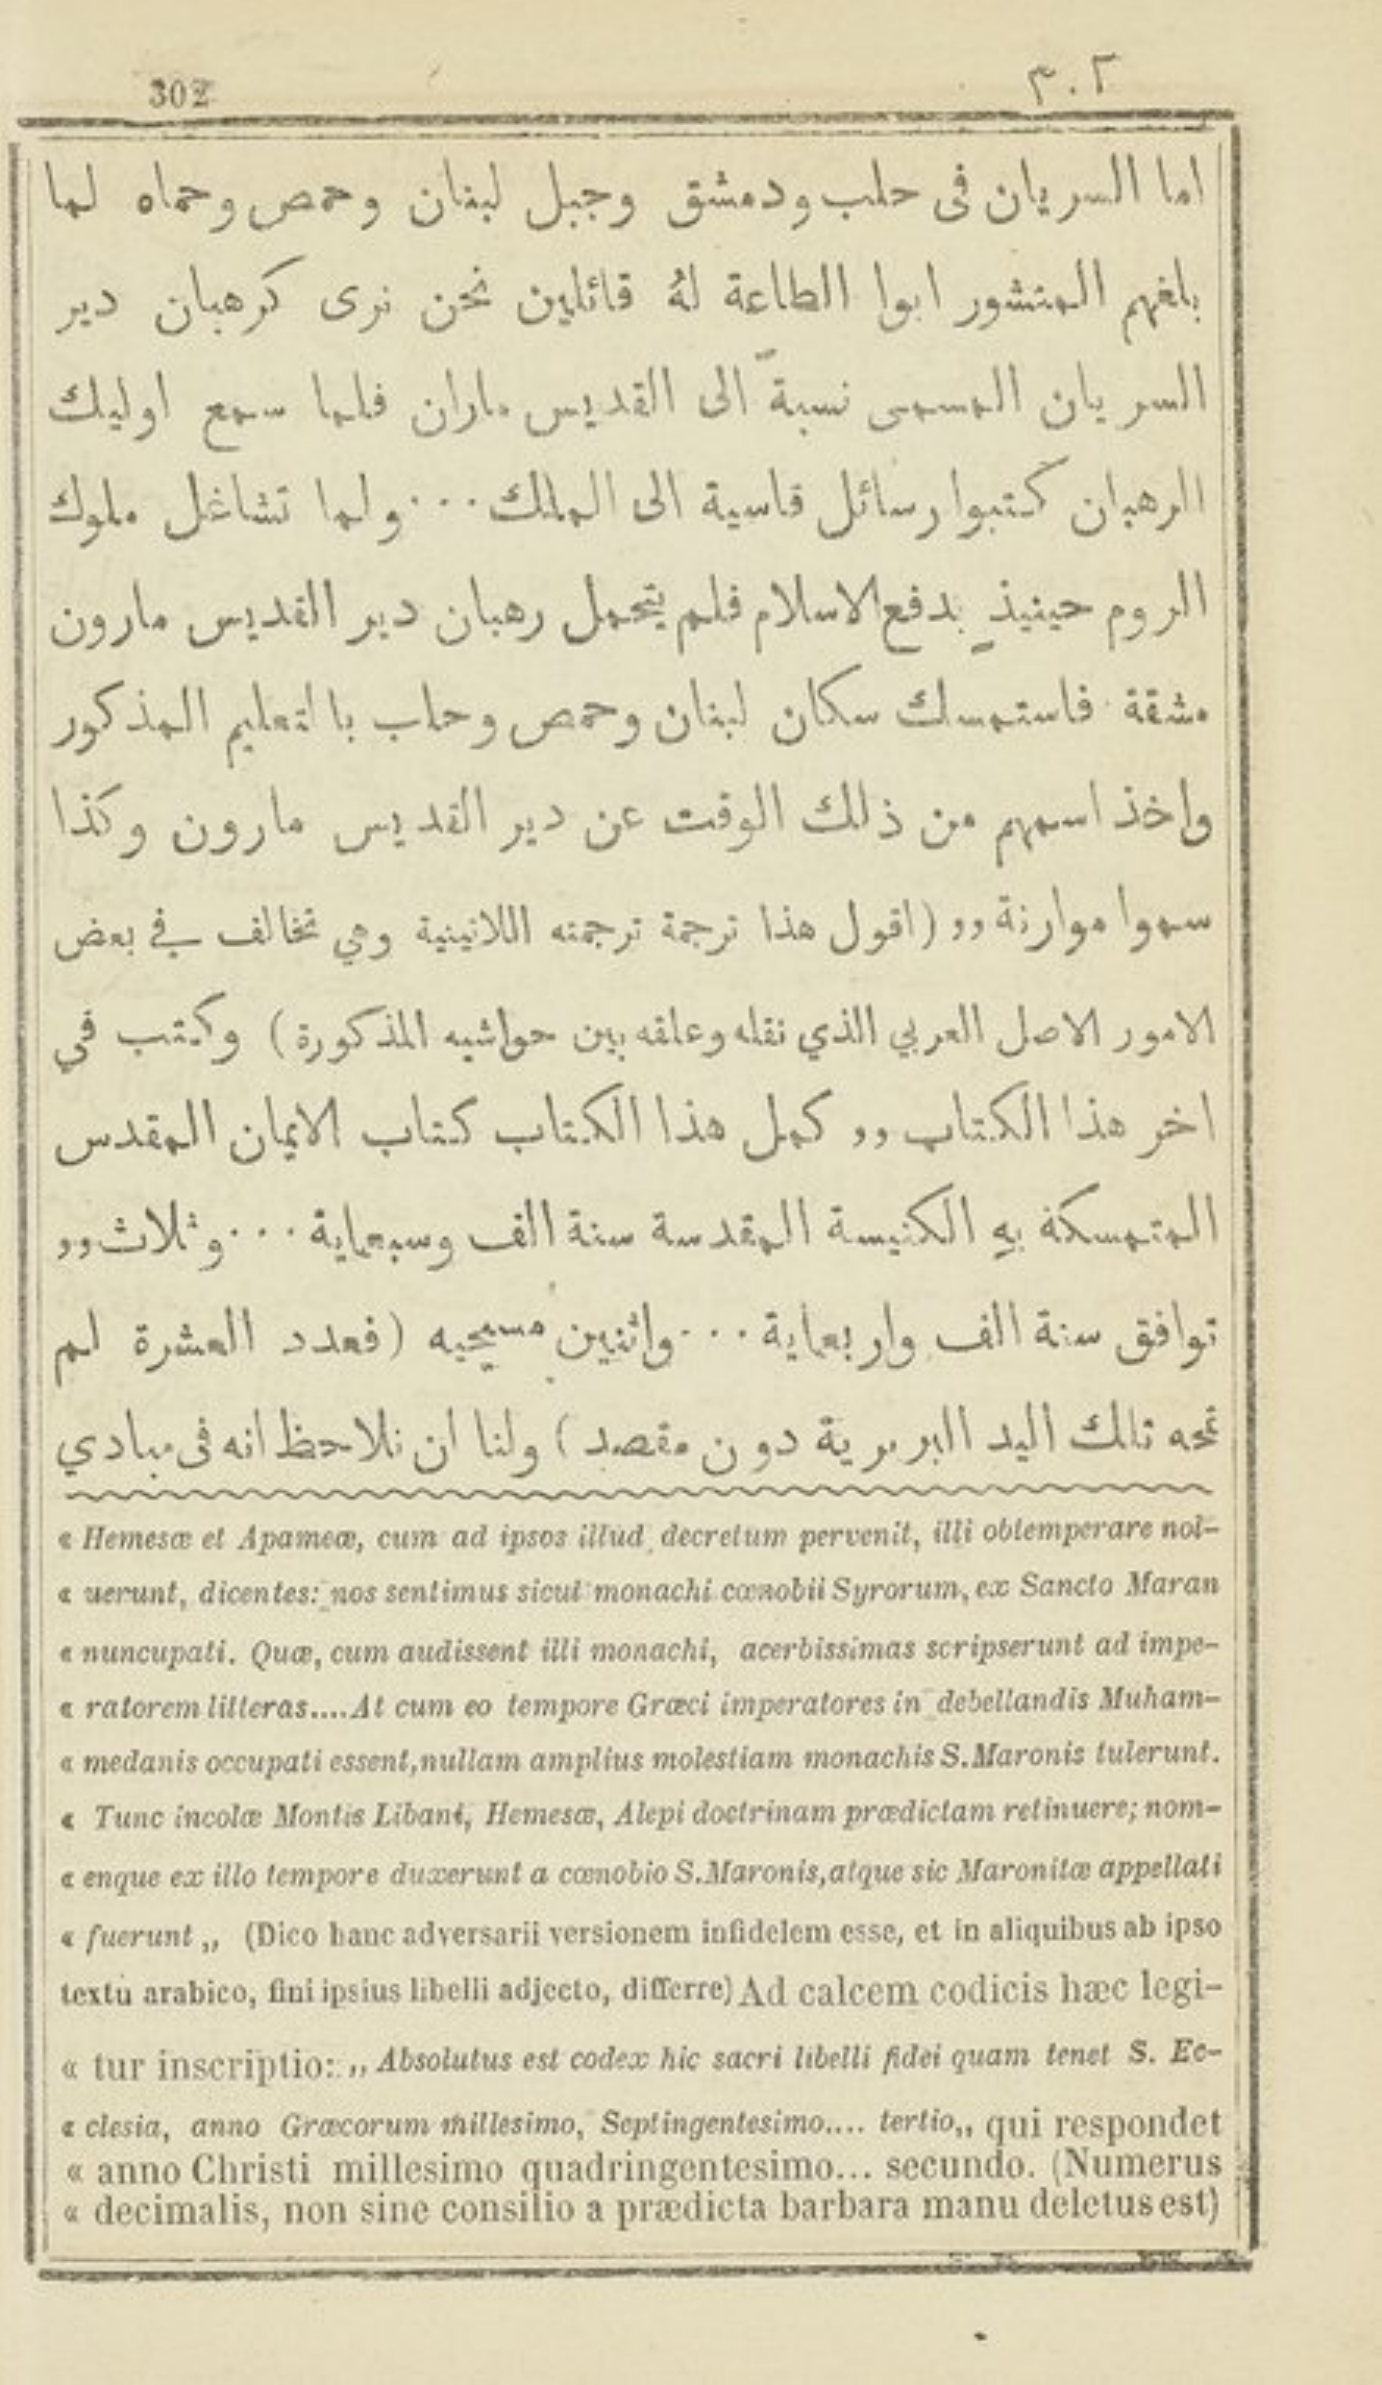 302
٣٠٢
اما السريان فى حلب ودمشق وجبل لبنان وحمص وحماه لما
بلغهم المنشور ابوا الطاعة لهُ قائلين نحن نرى كرهبان دير
السريان المسمى نسبةً الى القديس ماران فلما سمع اوليك
الرهبان كتبوا رسائل قاسية الى الملك ... ولما تشاغل ملوك
الروم حينيذٍ بدفع الاسلام فلم يتحمل رهبان دير القديس مارون
مشقة فاستمسك سكان لبنان وحمص وحلب بالتعليم المذكور
واخذ اسمهم من ذلك الوقت عن دير القديس مارون وكذا
سموا موارنة ,, (اقول هذا ترجمة ترجمته اللاتينية وهي تخالف في بعض
الامور الاصل العربي الذي نقله وعلقه بين حواشيه المذكورة) وكتب في
اخر هذا الكتاب ,, كمل هذا الكتاب كتاب الايمان المقدس
المتمسكة بهِ الكنيسة المقدسة سنة الف وسبعماية ... وثلاث ,,
توافق سنة الف واربعماية ... واثنين مسيحيه (فعدد العشرة لم
تمحه تلك اليد البربرية دون مقصد) ولنا ان نلاحظ انه فى مبادي
« Hemesæ et Apameæ, cum ad ipsos illud decretum pervenit, illi obtemperare nol-
« uerunt, dicentes: nos sentimus sicut monachi cœnobii Syrorum, ex Sancto Maran
« nuncupati. Quæ, cum audissent illi monachi, acerbissimas scripserunt ad impe-
« ratorem litteras.... At cum eo tempore Græci imperatores in debellandis Muham-
« medanis occupati essent, nullam amplius molestiam monachis S. Maronis tulerunt.
« Tunc incolæ Montis Libani, Hemesæ, Alepi doctrinam prædictam retinuere; nom-
« enque ex illo tempore duxerunt a cœnobio S. Maronis, atque sic Maronitæ appellati
« fuerunt ,, (Dico hanc adversarii versionem infidelem esse, et in aliquibus ab ipso
textu arabico, fini ipsius libelli adjecto, differre) Ad calcem codicis hæc legi-
« tur inscriptio: ,, Absolutus est codex hic sacri libelli fidei quam tenet S. Ec-
« clesia, anno Græcorum millesimo, Septingentesimo.... tertio,, qui respondet
« anno Christi millesimo quadringentesimo... secundo. (Numerus
« decimalis, non sine consilio a prædicta barbara manu deletus est)